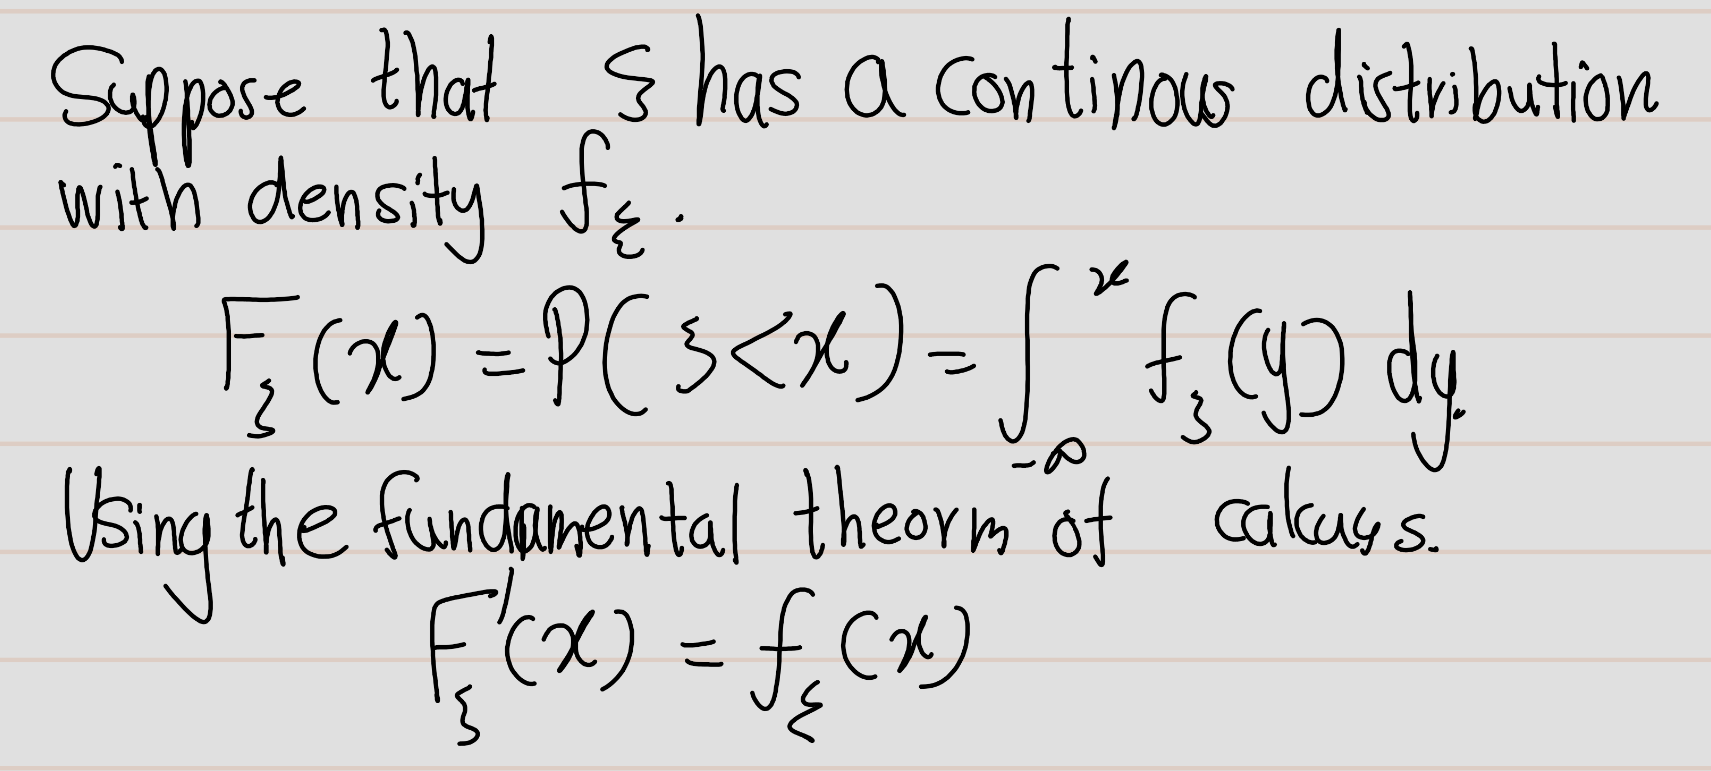 Suppose that ξ has a continous distribution
with density f_ξ.
F_ξ(x) = P(ξ<x) = ∫_{-∞}^{x} f_ξ(y) dy.
Using the fundamental theorm of calculus.
F'_ξ(x) = f_ξ(x)